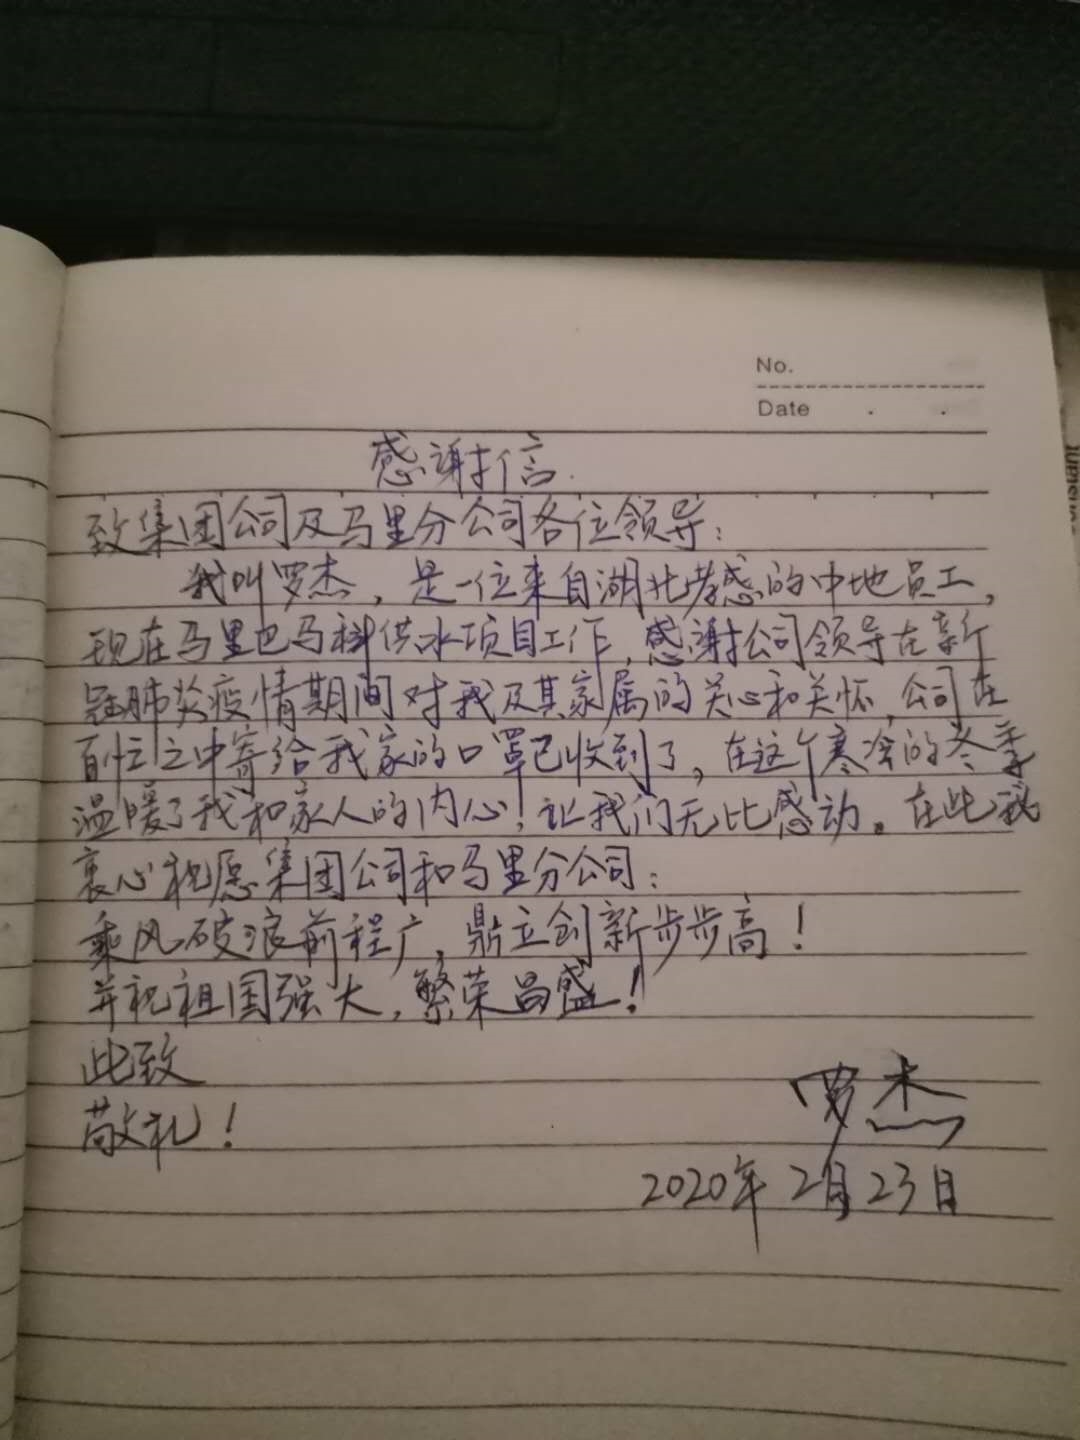 No.
Date
感谢信
致集团公司及马里分公司各位领导:
我叫罗杰,是一位来自湖北孝感的中地员工,
现在马里巴马科供水项目工作,感谢公司领导在新
冠肺炎疫情期间对我及其家属的关心和关怀,公司在
百忙之中寄给我家的口罩已收到了,在这个寒冷的冬季
温暖了我和家人的内心!让我们无比感动。在此我
衷心祝愿集团公司和马里分公司:
乘风破浪前程广,鼎立创新步步高!
并祝祖国强大,繁荣昌盛!
此致
敬礼!
罗杰
2020年2月23日